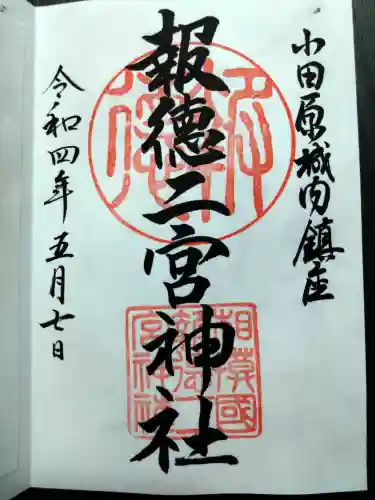 小田原城内鎮座
報徳二宮神社
令和四年五月七日
相模國
報徳二
宮神社